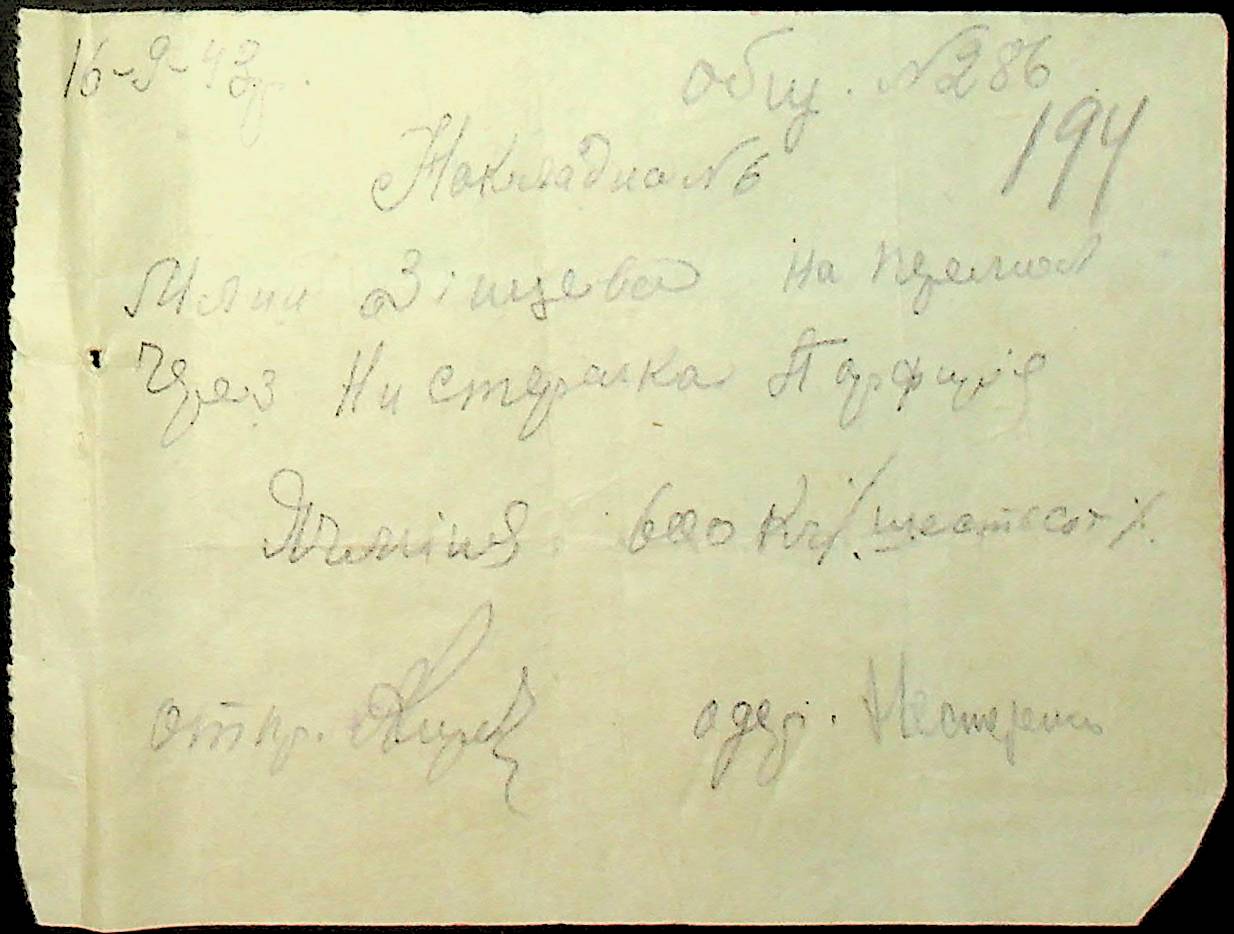 16-9-43р. общ. №286
194
Накладна №6
Млин Зінцева на
через Нистеренка Парфирія
Ячміня 600 кг /шестьсот/.
отпр.
одер. Нестеренко